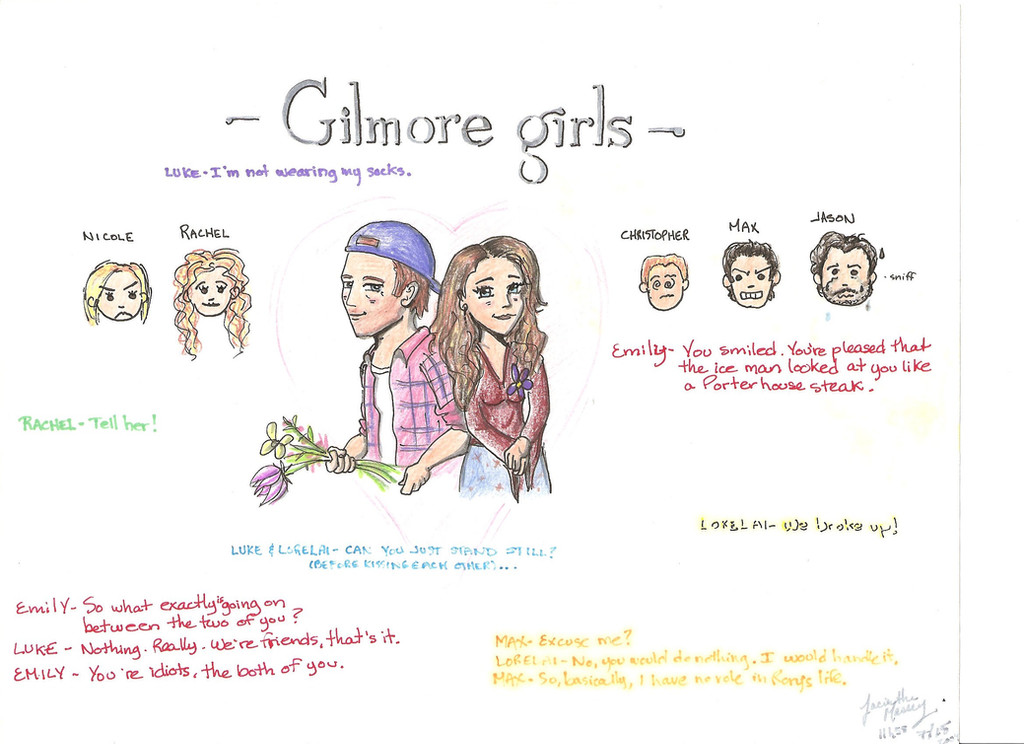 - Gilmore girls -
LUKE - I'm not wearing my socks.
NICOLE
RACHEL
CHRISTOPHER
MAX
JASON
sniff
Emily - You smiled. You're pleased that
the ice man looked at you like
a Porterhouse steak.
RACHEL - Tell her!
LORELAI - We broke up!
LUKE & LORELAI - CAN YOU JUST STAND STILL?
(BEFORE KISSING EACH OTHER)...
EMILY - So what exactly is going on
between the two of you?
LUKE - Nothing. Really. We're friends, that's it.
EMILY - You're idiots, the both of you.
MAX - Excuse me?
LORELAI - No, you would do nothing. I would handle it.
MAX - So, basically, I have no role in Rory's life.